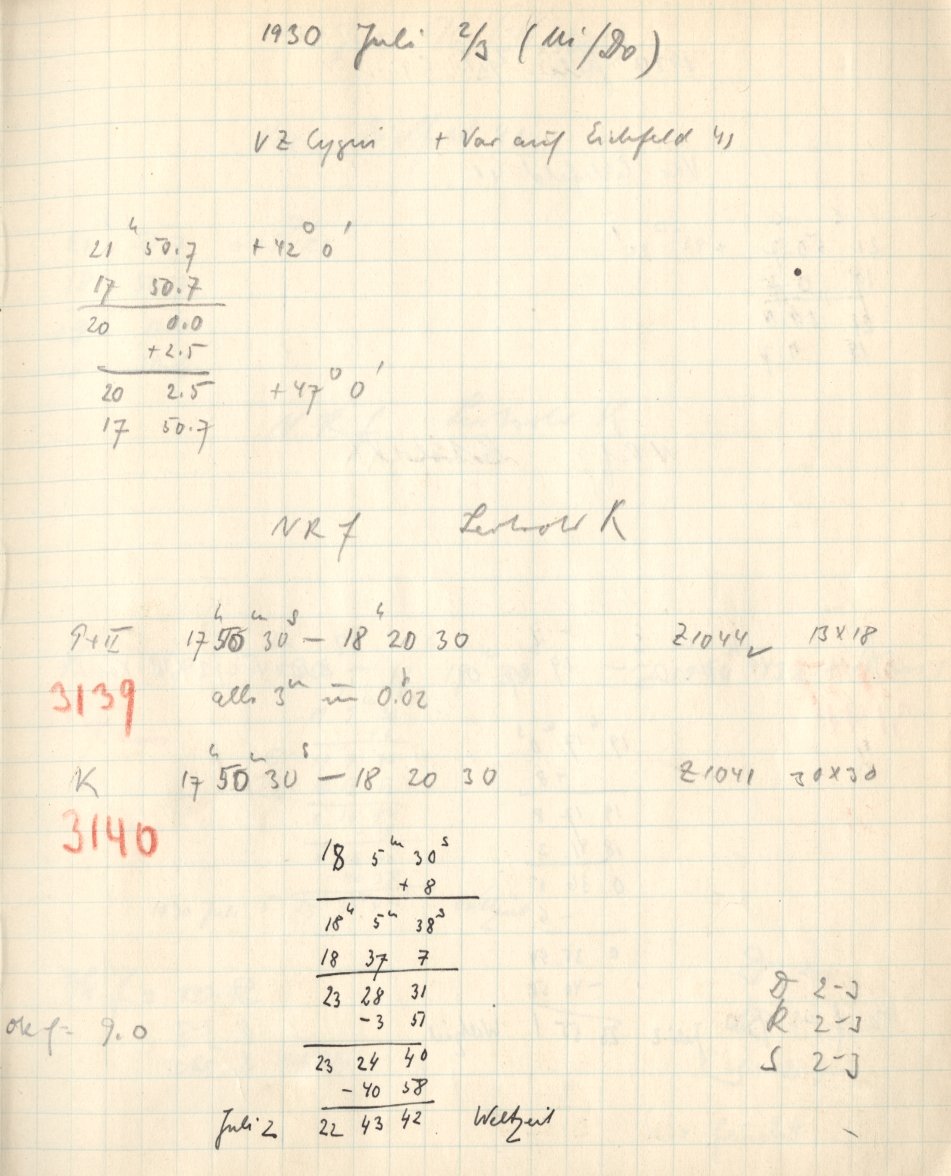 1930 Juli 2/3 (Mi/Do)
VZ Cygni + Var auf Eichfeld 41
21 h 50.7 +42° 0'
17 50.7
20 0.0
+2.5
20 2.5 +47° 0'
17 50.7
NR f K
P+II 17 h 50 m 30 s – 18 h 20 30 Z1044 13x18
3139 alle 3 m um 0.02
K 17 h 50 m 30 s – 18 20 30 Z1041 30x30
3140
18 5 m 30 s
+ 8
18 h 5 m 38 s
18 37 7
23 28 31
-3 51
23 24 40
-40 58
Juli 2 22 43 42 Weltzeit
D 2-3
R 2-3
S 2-3
f = 9.0